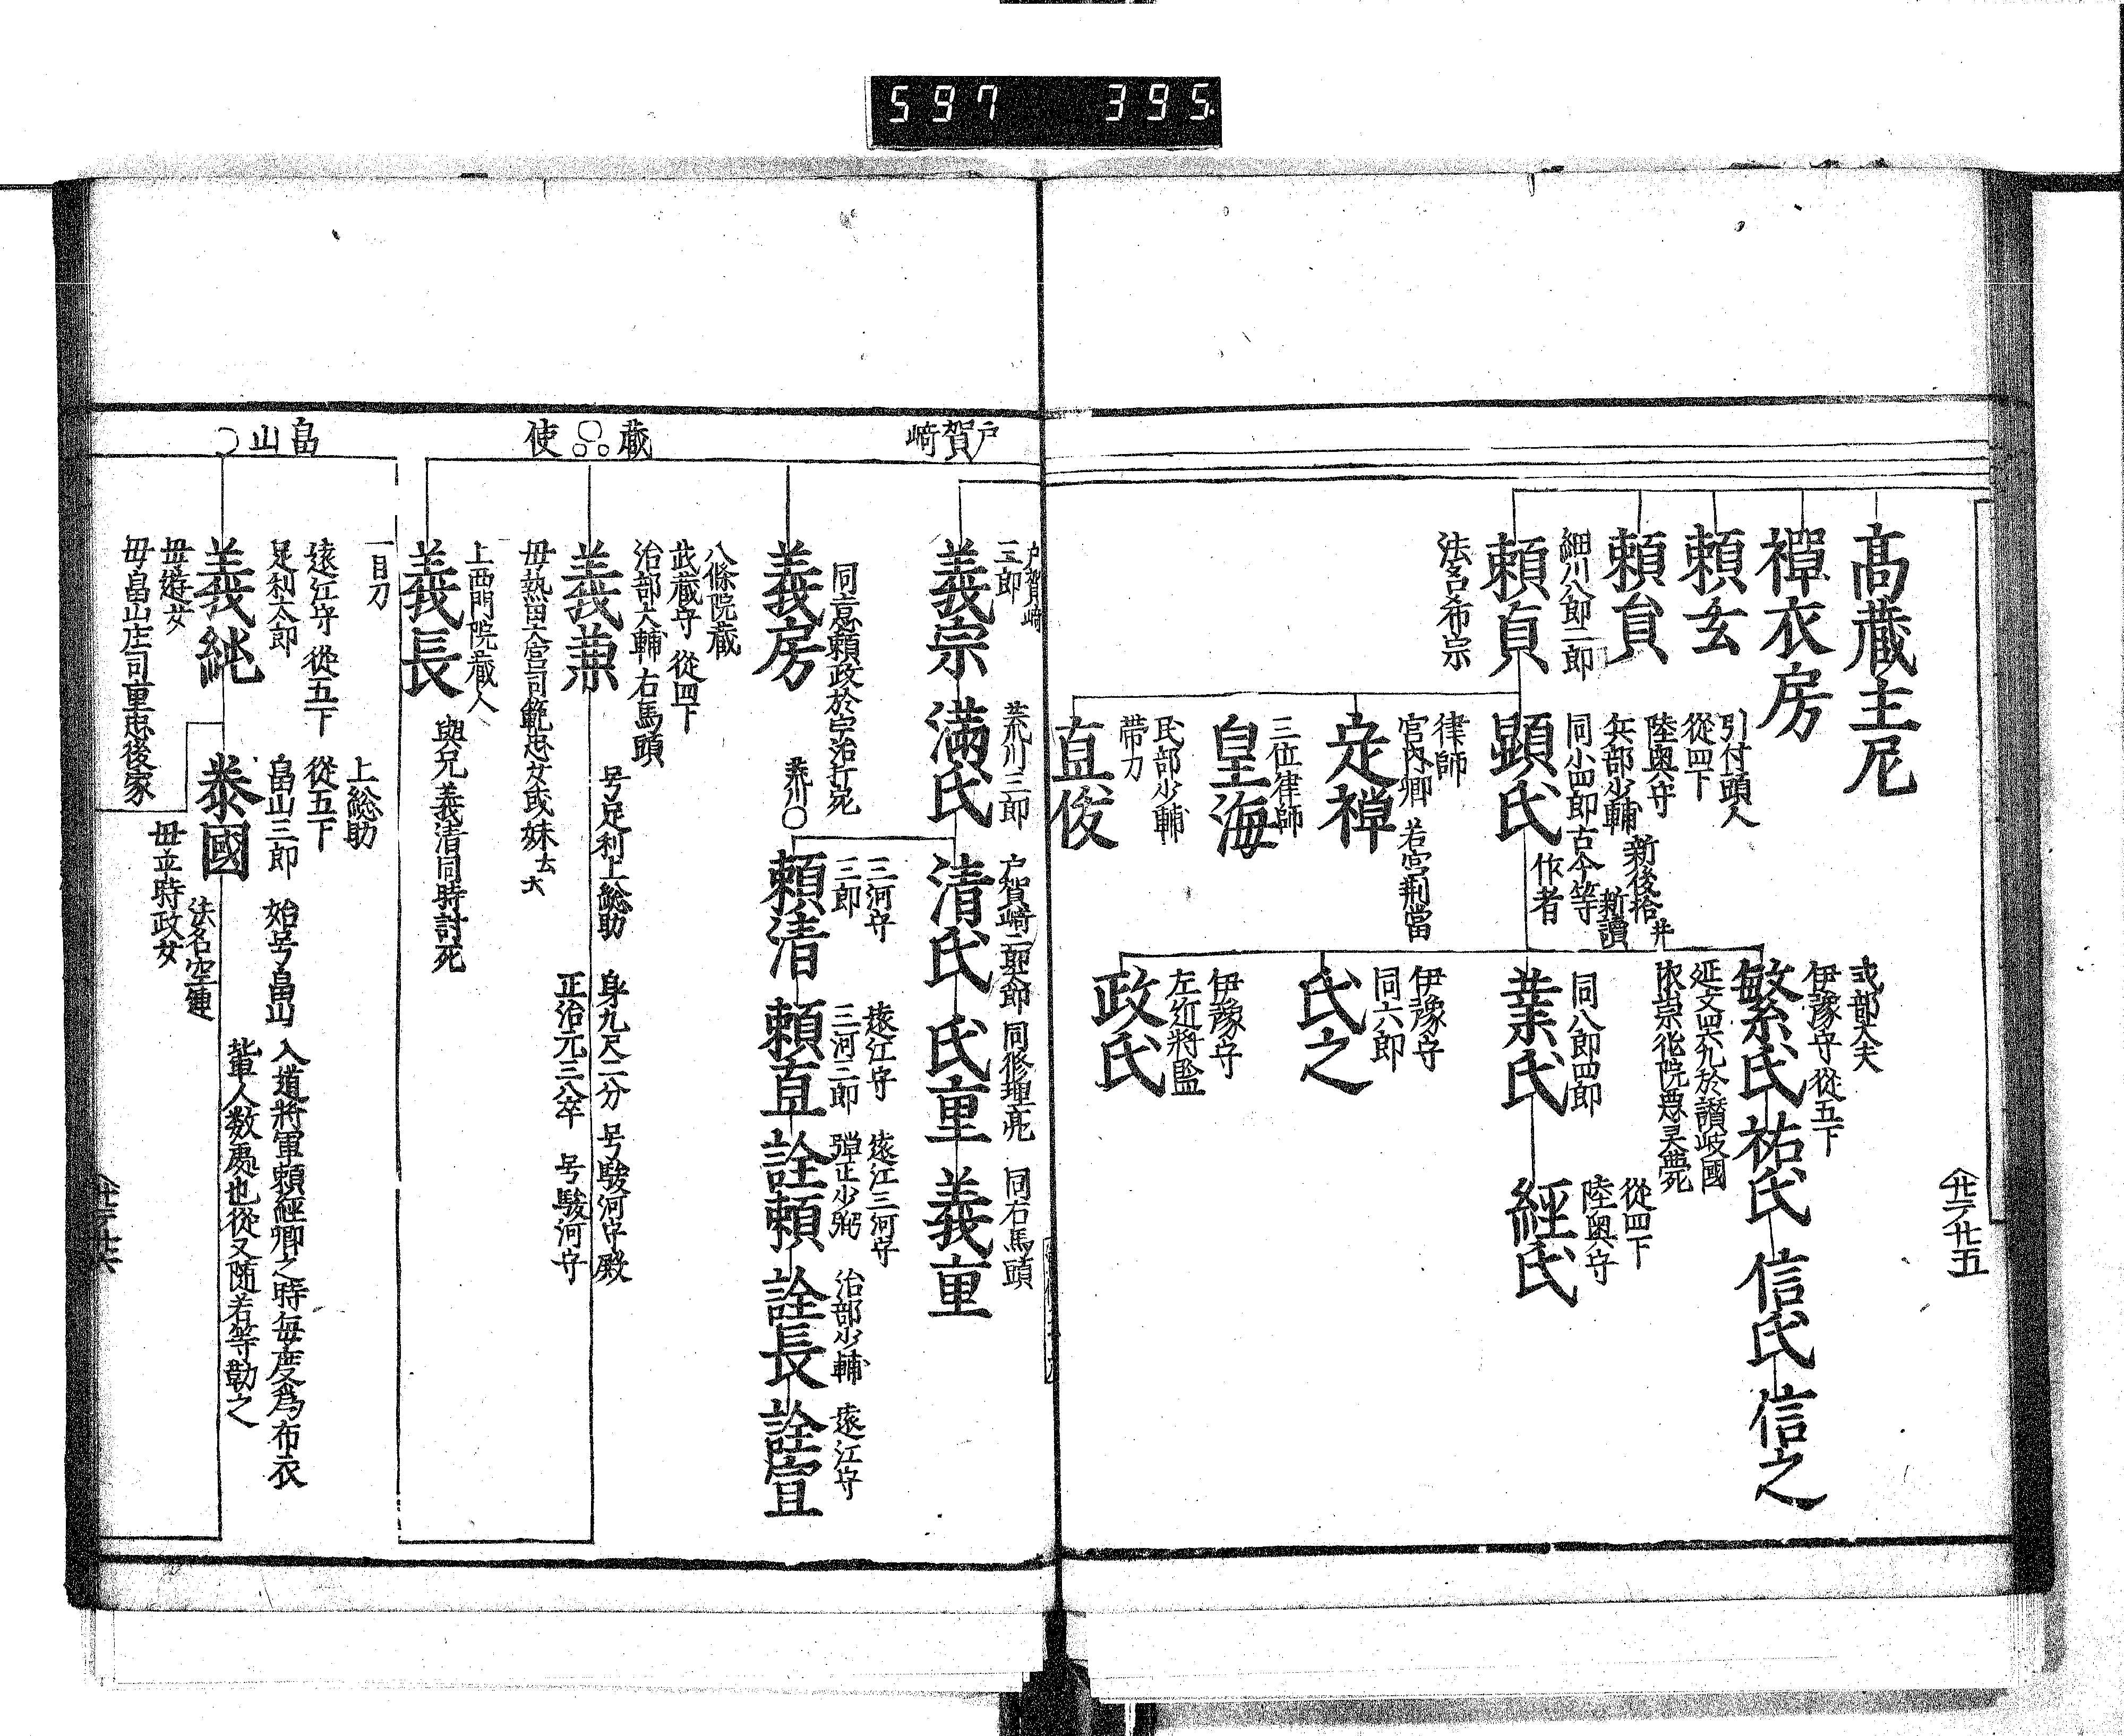 597 395.
高蔵主尼
禅衣房
頼玄
頼貟
細川八郎二郎
頼貞
法名希宗
引付頭人
從四下
陸奥守
新後拾
兵部少輔
新讀
同小四郎古今等
作者
顕氏
律師
宮内卿 若宮別當
定禅
三位律師
皇海
民部少輔
帯刀
直俊
式部大夫
伊豫守從五下
繁氏
祐氏
信氏
信之
延文四六九於讃岐國
同八郎四郎
業氏
從四下
陸奥守
經氏
伊豫守
同六郎
氏之
伊豫守
左近將監
政氏
廿五
戸賀崎
戸賀崎
三郎
義宗
荒川三郎
満氏
清氏
同修理亮
氏重
同右馬頭
義重
同意頼政於宇治打死
義房
荒川
三河守
三郎
頼清
遠江守
三河三郎
頼直
遠江三河守
弾正少弼
詮頼
治部少輔
詮長
遠江守
詮宣
蔵 使
八條院蔵
武蔵守 從四下
治部大輔 右馬頭
義兼
号足利上総助 身九尺二分 号駿河守殿
正治元三八卒 号駿河守
毋熱田大宮司範忠女或妹云々
上西門院蔵人
義長
與兄義清同時討死
畠山
一目刀
遠江守 從五下
足利太郎
義純
毋遊女
毋畠山庄司重忠後家
上総助
從五下
畠山三郎 始号畠山
泰國
入道將軍頼經卿之時毎度為布衣
輩人数處也從又随若等勤之
法名空蓮
毋平時政女